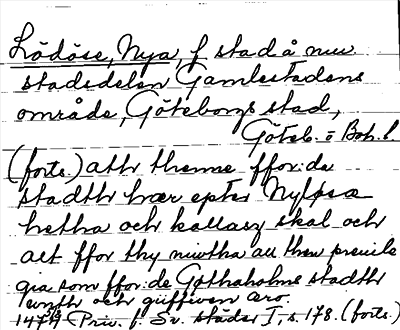 Lödöse, Nya, f stad å nuv
stadsdelen Gamlestadens
område, Göteborgs stad,
Göteb. o Boh. l.
(forts.) athr thenne ffor:de
stadthr hær epter Nyløsa
hetha och kallasz skal och
alt ffor thy niwtha all then previle
gia som ffor:de Gothaholms stadthr
wnth och giffwen æro.
1474 Priv. f. Sv. städer I, s. 178. (forts.)